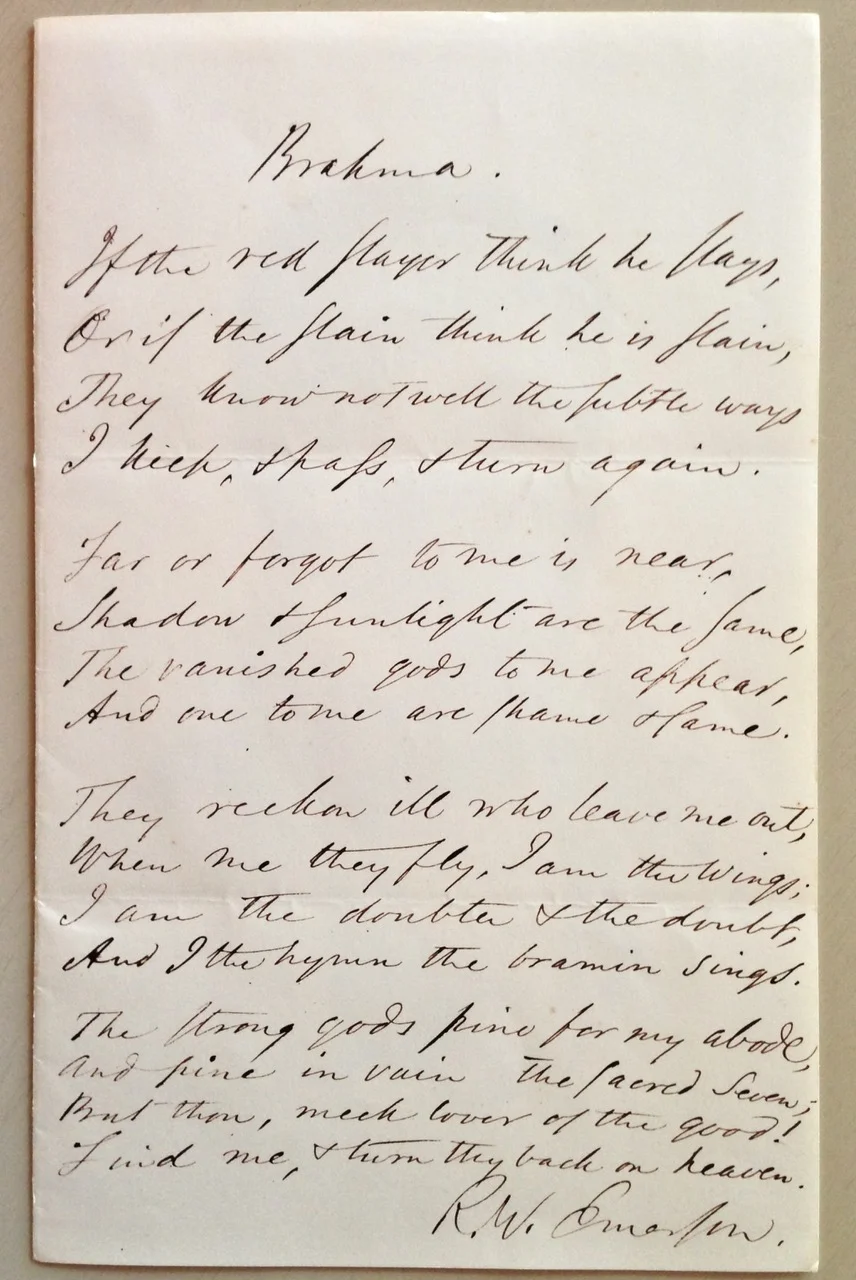 Brahma.
If the red slayer think he slays,
Or if the slain think he is slain,
They know not well the subtle ways
I keep, & pass, & turn again.
Far or forgot to me is near,
Shadow & sunlight are the same,
The vanished gods to me appear,
And one to me are shame & fame.
They reckon ill who leave me out,
When me they fly, I am the wings;
I am the doubter & the doubt,
And I the hymn the bramin sings.
The strong gods pine for my abode,
And pine in vain the sacred Seven;
But thou, meek lover of the good!
Find me, & turn thy back on heaven.
R.W. Emerson.